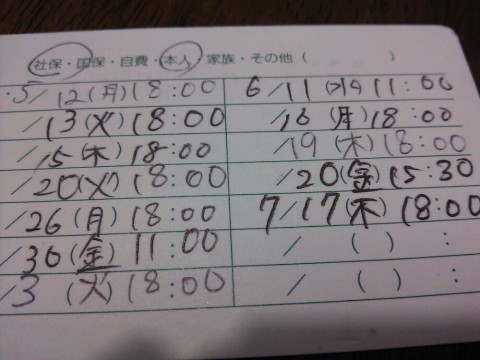 社保・国保・自費・本人・家族・その他（　　　）
5/12(月)18:00
/13(火)18:00
/15(木)18:00
/20(火)18:00
/26(月)18:00
/30(金)11:00
/3(火)18:00
6/11(水)11:00
/16(月)18:00
/19(木)18:00
/20(金)15:30
7/17(木)18:00
/ ( ) :
/ ( ) :